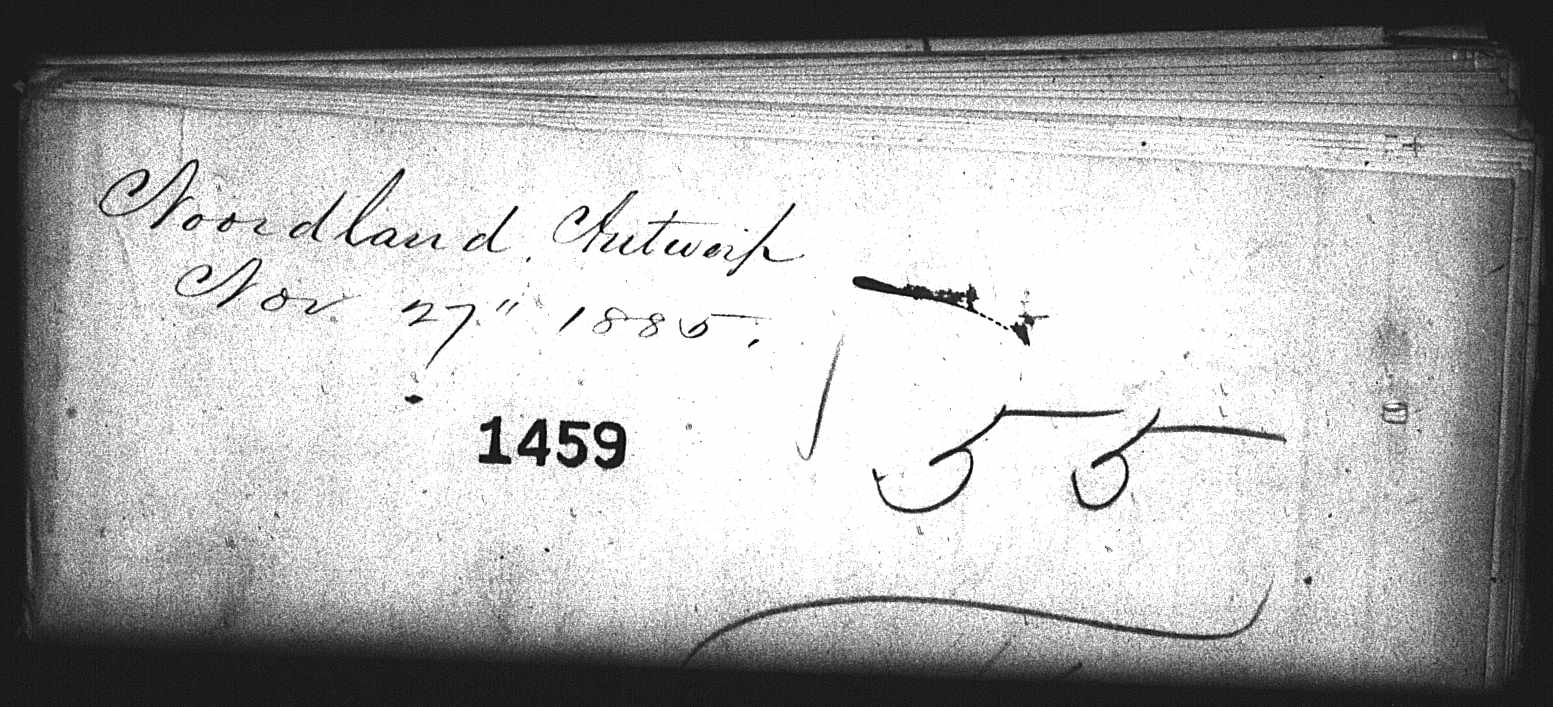 Noordland, Antwerp
Nov 27" 1885.
1459
55